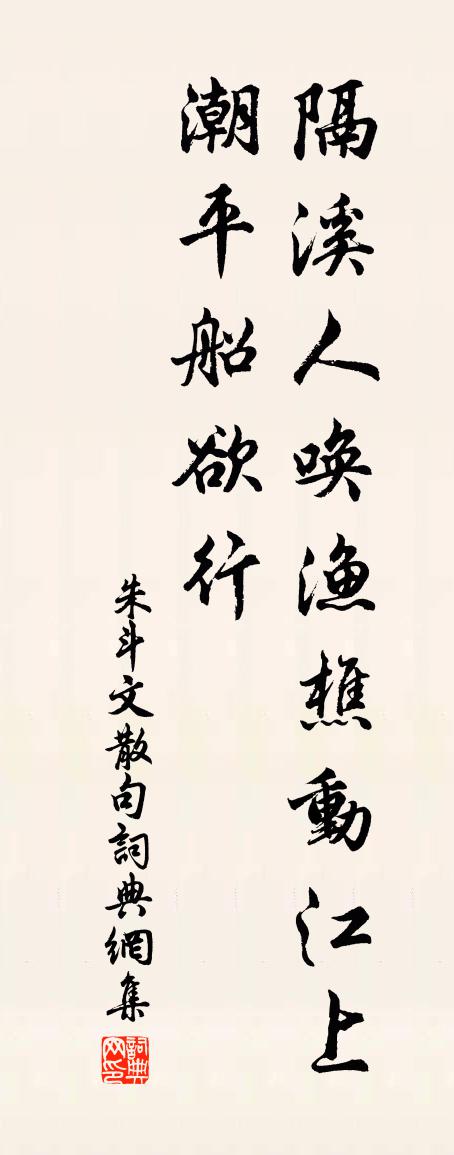 隔溪人唤漁樵動江上
潮平船欲行
朱斗文散句詞典網集
詞典网印